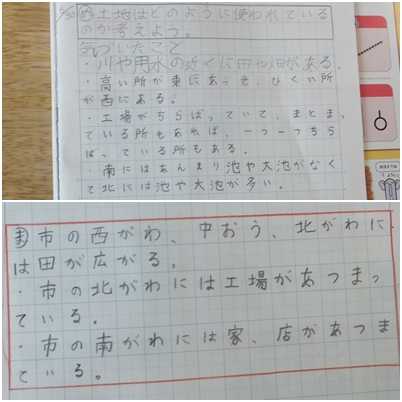 5/30 め 土地はどのように使われている
のか考えよう。
気づいたこと
・川や用水の近くに田や畑がある。
・高い所が東にあって、ひくい所
が西にある。
・工場がちらばっていて、まとまっ
ている所もあれば、一つ一つちら
ばっている所もある。
・南にはあんまり池や大池がなく
て北には池や大池が多い。
ま 市の西がわ、中おう、北がわに
は田が広がる。
・市の北がわには工場があつまっ
ている。
・市の南がわには家、店があつま
ている。